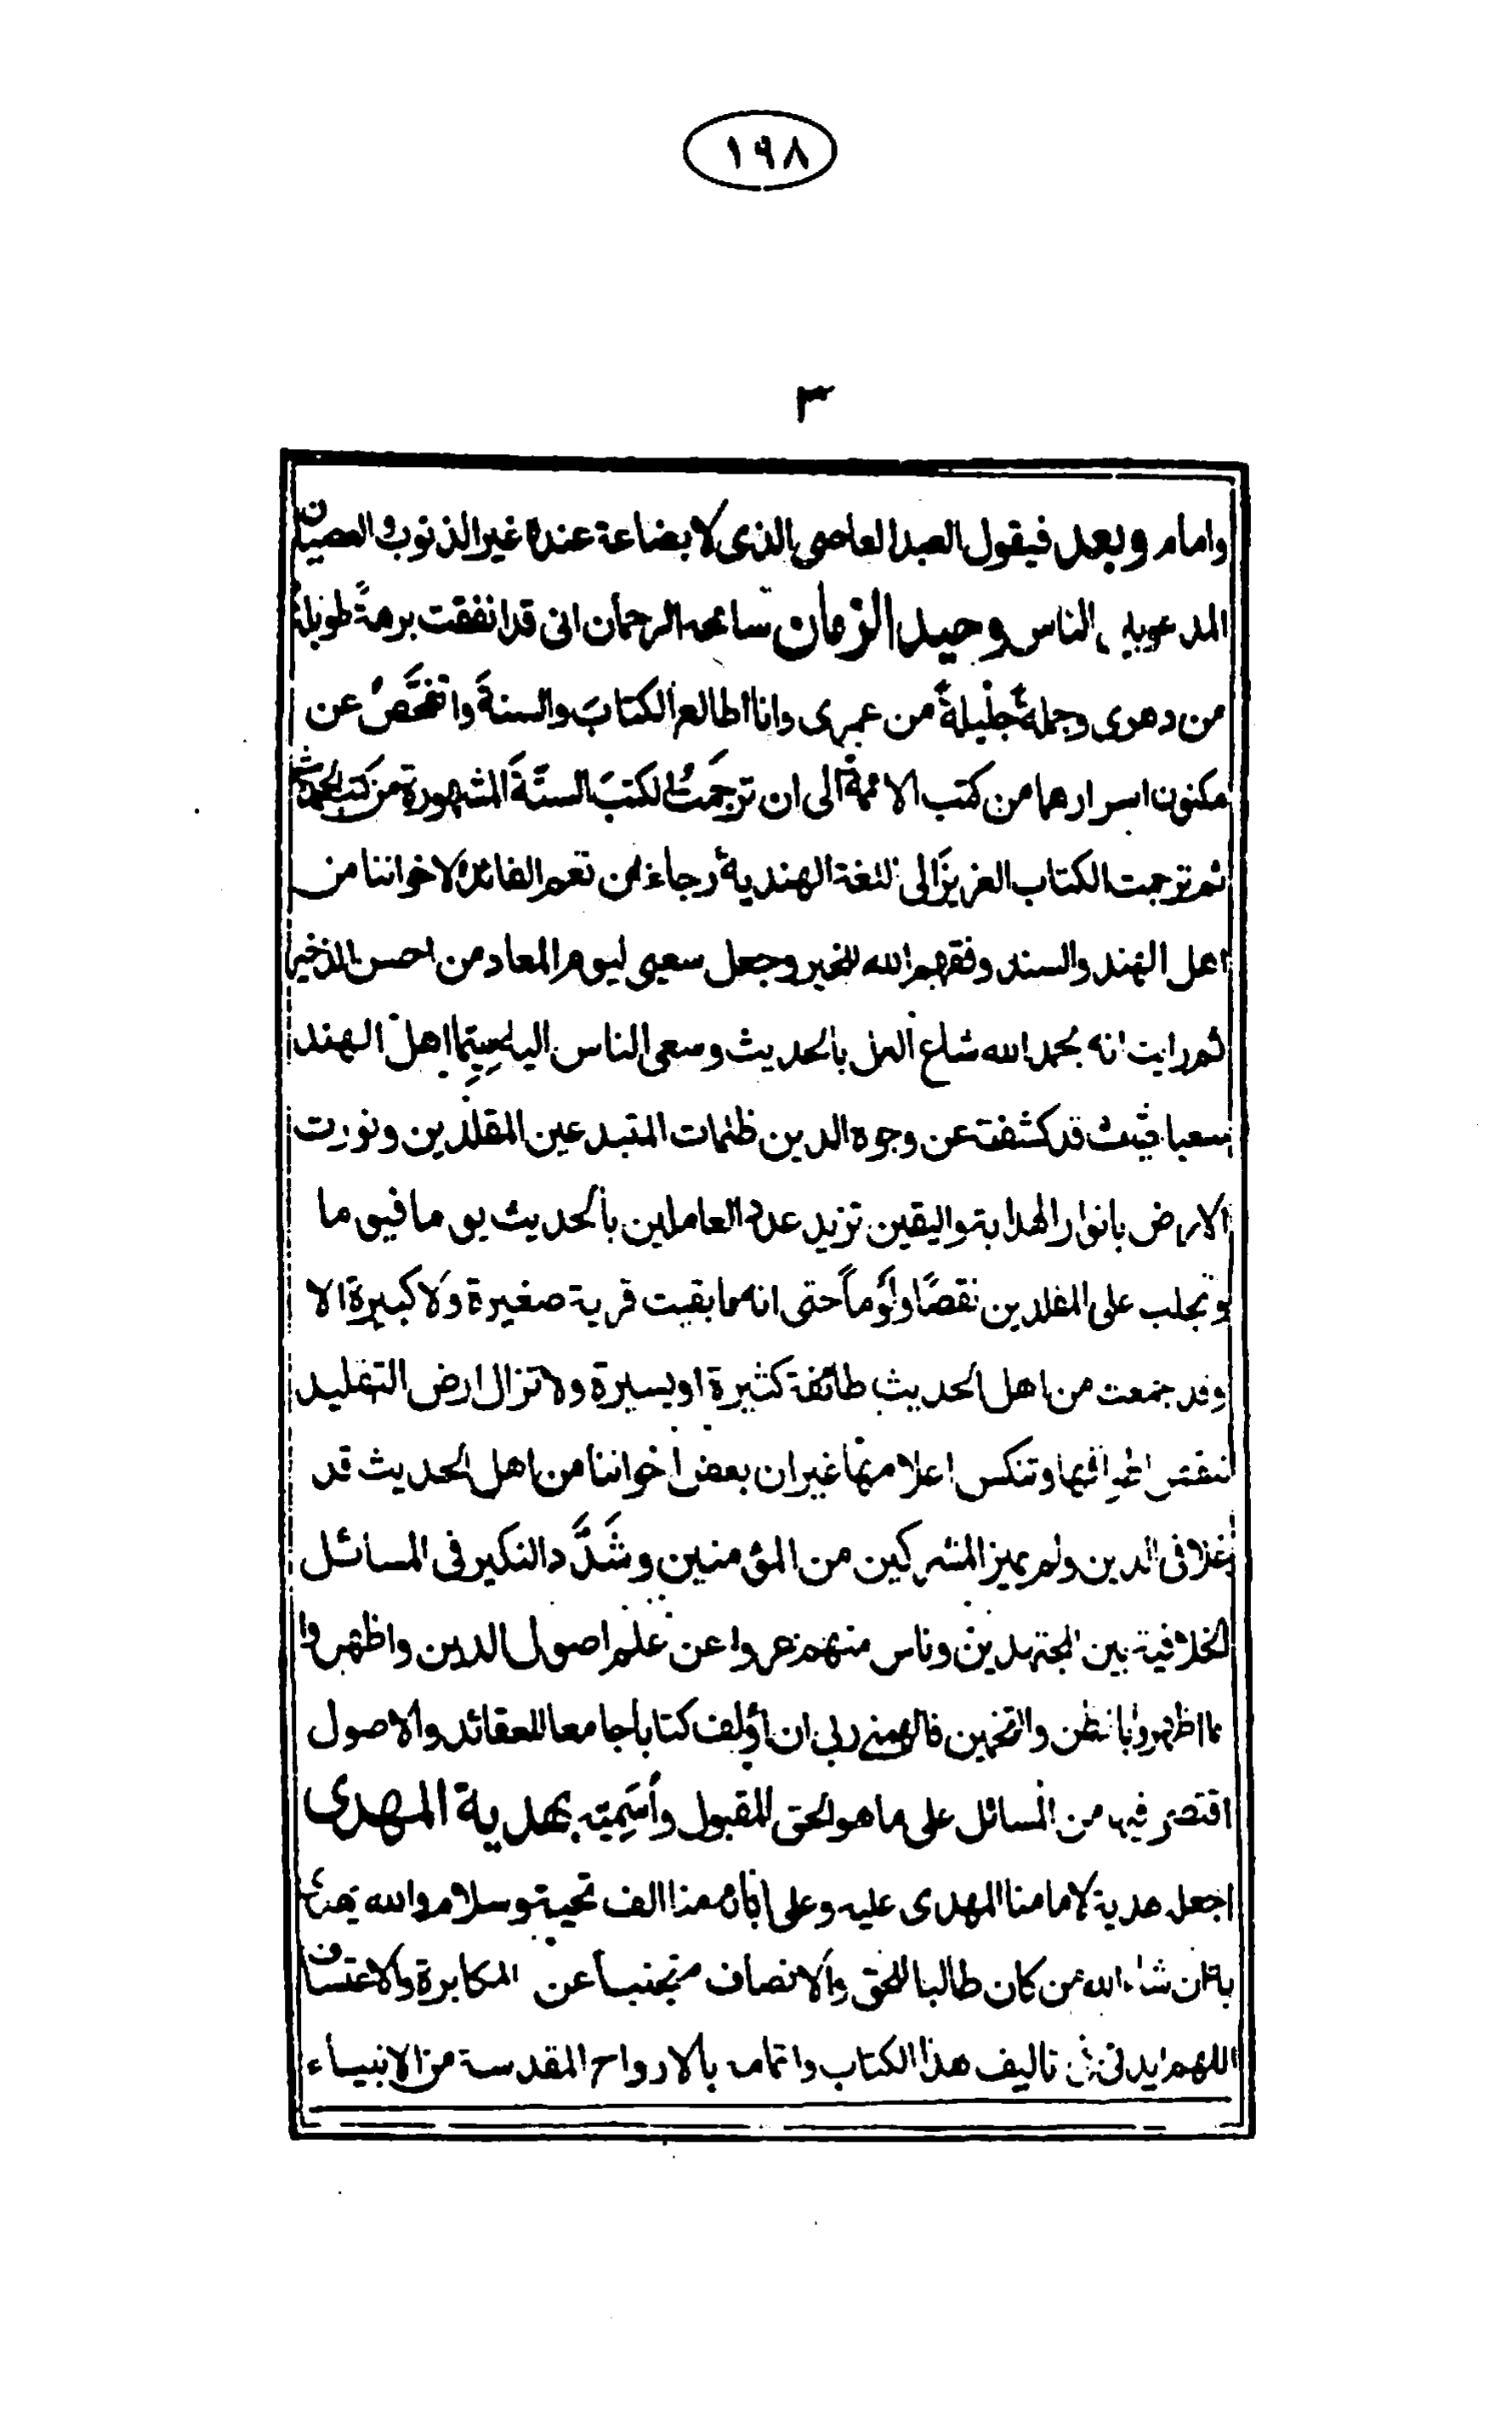 ١٩٨
٣
وامام وبعد فيقول العبد العاصى الذى لا بضاعة عنده غير الذنوب والعصيان
المدعو بين الناس وحيد الزمان سامحه الرحمان انى قد انفقت برهةً طويلةً
من دهرى وجملةً جليلةً من عمرى وانا اطالع الكتابَ والسنةَ واتفحَّصُ عن
مكنون اسرارهما من كتب الائمة الى ان ترجَمتُ الكتبَ الستّةَ المشهورة من كتب الحديث
ثم ترجمت الكتاب العزيزَ الى اللغة الهندية رجاء ان تعم الفائدة لاخواننا من
اهل الهند والسند وفقهم الله للخير وجعل سعيى ليوم المعاد من احسن الذخير
ثم رايت انه بحمد الله شاع العمل بالحديث وسعى الناس اليه سِيَّما اهل الهند
سعيا حيث قد كشفت عن وجوه الدين ظلمات المتبدعين المقلدين ونورت
الارض بانوار الهداية واليقين تزيد عدد العاملين بالحديث يوما فيوما
وتجلب على المقلدين نقصًا ولَوماً حتى انه ما بقيت قرية صغيرة ولا كبيرة الا
وقد جمعت من اهل الحديث طائفة كثيرة او يسيرة ولا تزال ارض التقليد
تنقص اطرافها وتنكس اعلامها غير ان بعض اخواننا من اهل الحديث قد
غلا فى الدين ولم يميز المشركين من المؤمنين وشَدَّد النكير فى المسائل
الخلافية بين المجتهدين وناس منهم عروا عن علم اصول الدين واظهروا
ما اظهروا بالظن والتخمين فالهمنى ربى ان أؤلف كتاباً جامعا للعقائد والاصول
اقتصر فيه من المسائل على ما هو الحق المقبول وأُسَمِّيه بهدية المهدى
اجعله هدية لامامنا المهدى عليه وعلى آبائه منا الف تحية وسلام والله
به ان شاء الله من كان طالبا للحق والانصاف متجنبا عن المكابرة والاعتساف
اللهم ايدنى فى تاليف هذا الكتاب واتمامه بالارواح المقدسة من الانبياء